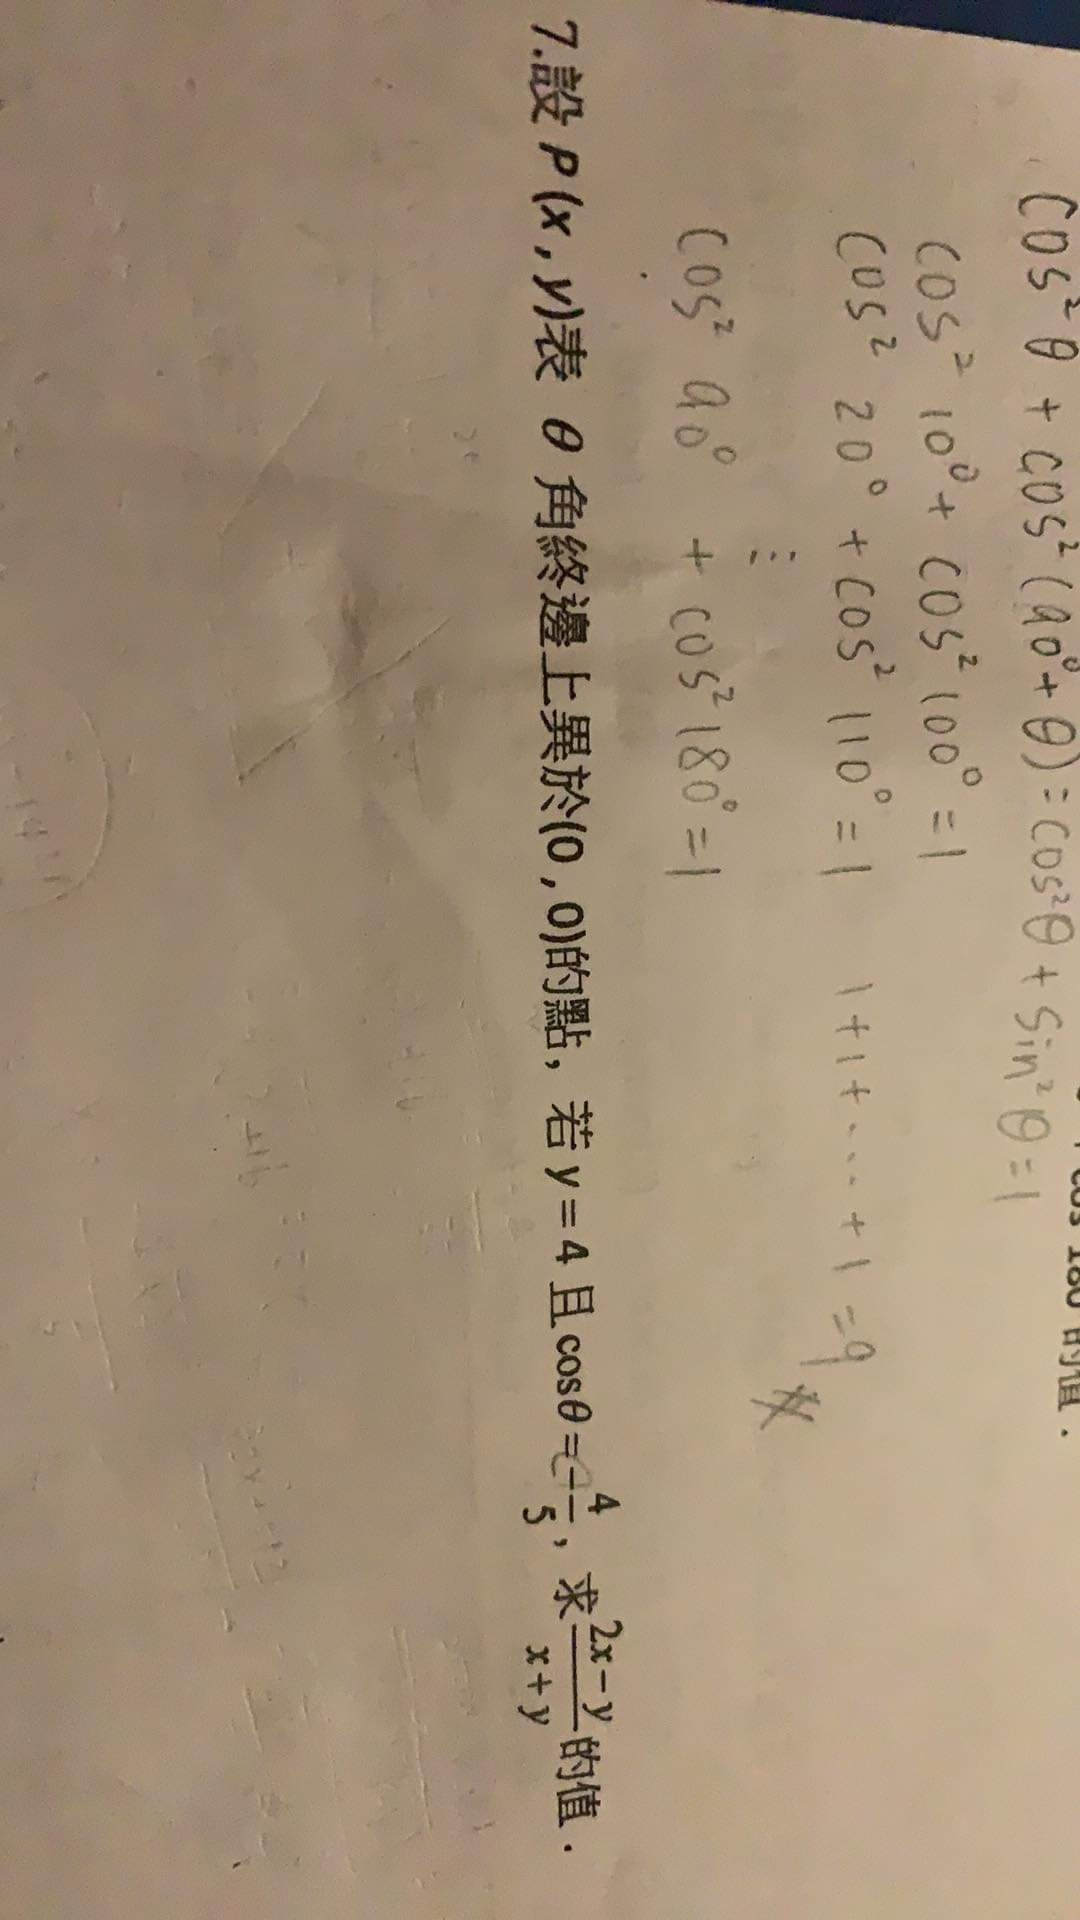 cos 180 的值.
cos² θ + cos² (90° + θ) = cos²θ + sin² θ = 1
cos² 10° + cos² 100° = 1
cos² 20° + cos² 110° = 1 1+1+...+1 = 9
⋮
cos² 90° + cos² 180° = 1
7.設 P(x, y)表 θ 角終邊上異於(0, 0)的點，若 y = 4 且 cosθ = -4/5，求 2x-y/x+y 的值.